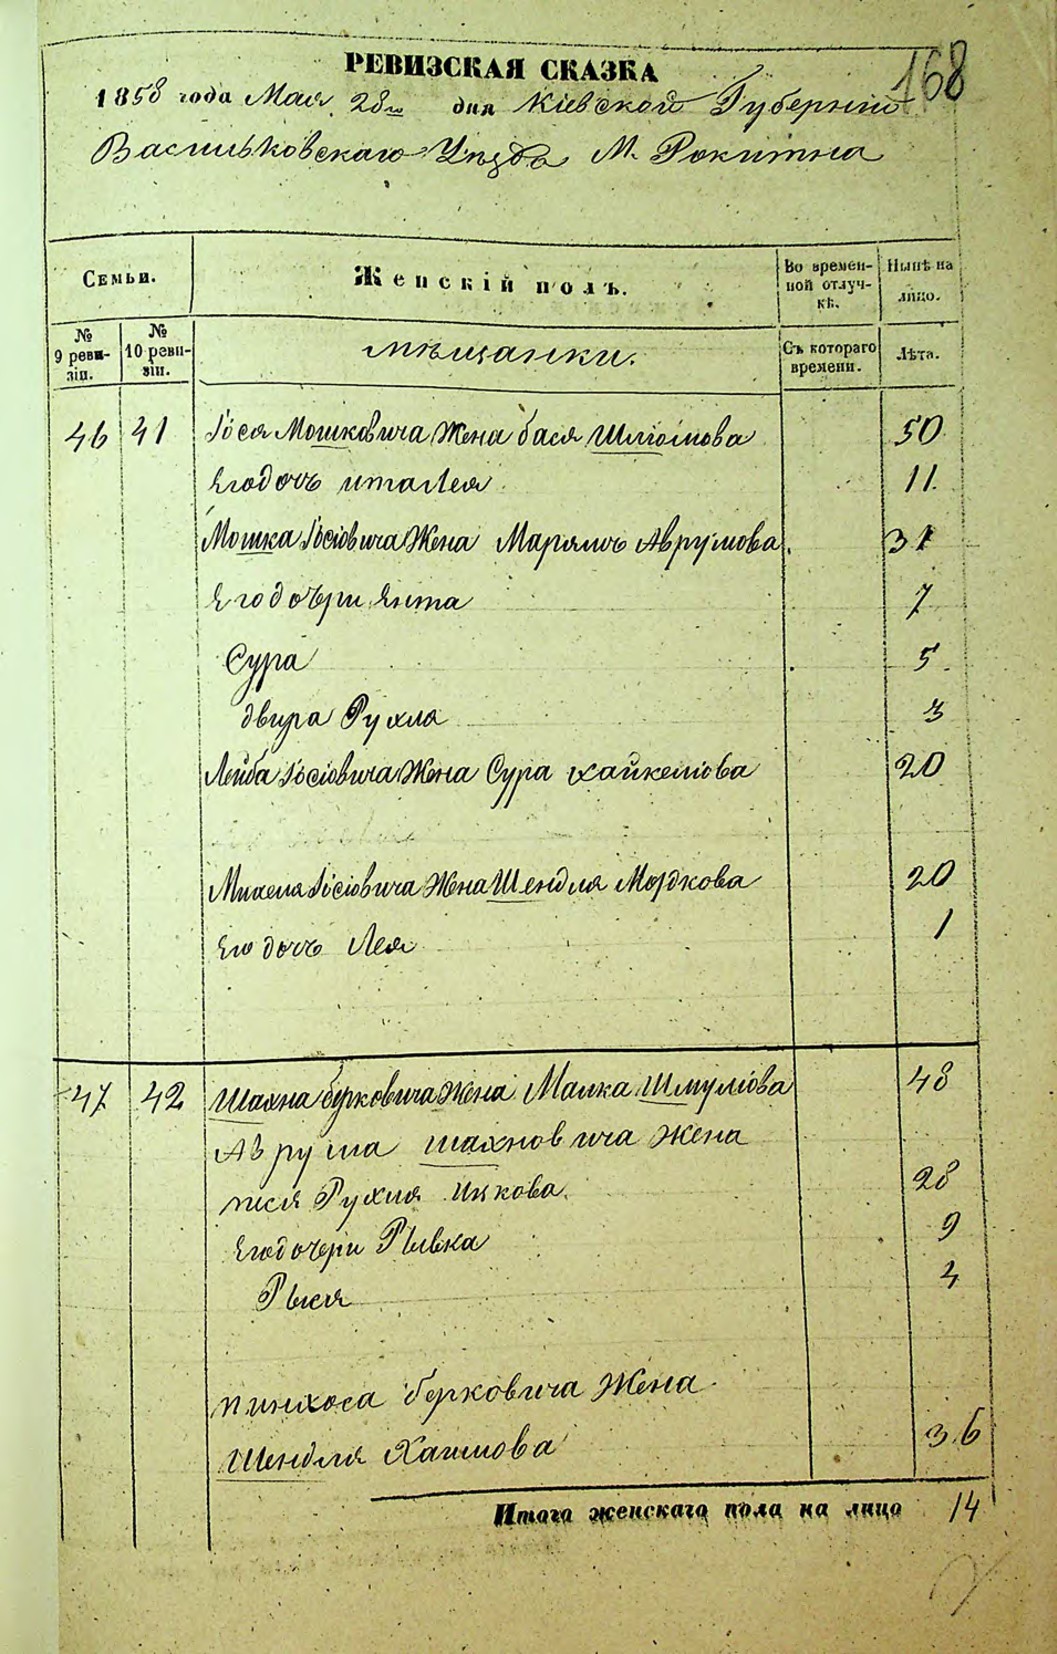 168
РЕВИЗСКАЯ СКАЗКА
1858 года Мая 28го дня Кіевской Губерніи
Васильковскаго Уѣзда М. Рокитна
Семьи.
Женскій полъ.
Во времен-
ной отлуч-
кѣ.
Нынѣ на
лицо.
№
9 реви-
зіи.
№
10 реви-
зіи.
мѣщанки.
Съ котораго
времени.
Лѣта.
46 41 Іося Мошковича Жена бася Шліомова 50
Его дочь ита Лея 11.
Мошка Іосіовича Жена Марямъ Аврумова. 31
Его дочери Ента 7
Сура 5
двира Рухля 3
Лейба Іосіовича Жена Сура хайкеліова 20
Михеля Іосіовича Жена Шендля Мордкова 20
Его дочь Лея 1
47 42 Шахна берковича Жена Малка Шмуліова 48
Аврума шахновича Жена
пися Рухля Ицкова. 28
Его дочери Рывка 9
Рыся 4
пинхоса берковича Жена
Шендля Хаимова 36
Итого женскаго пола на лицо 14